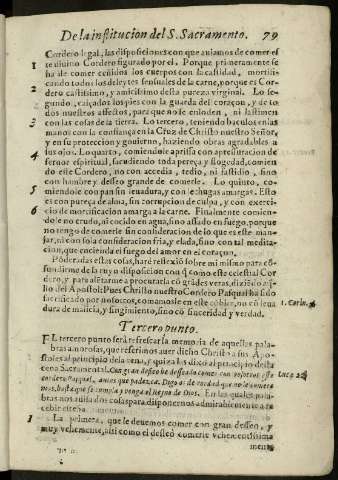 De la institucion del S. Sacramento. 79
Cordero legal, las disposiciones con que auiamos de comer este
diuino Cordero figurado por el. Porque primeramente se
1 ha de comer ceñidos los cuerpos con la castidad, mortificando
todos los deleytes sensuales de la carne, porque es Cordero
2 castissimo, y amicissimo desta pureza virginal. Lo segundo,
calçados los pies con la guarda del coraçon, y de todos
nuestros affectos, para que no se enloden, ni lastimen
3 con las cosas de la tierra. Lo tercero, teniendo baculos en las
manos con la confiança en la Cruz de Christo nuestro Señor,
y en su proteccion y gouierno, haziendo obras agradables a
4 sus ojos. Lo quarto, comiendole aprissa con apressuracion de
feruor espiritual, sacudiendo toda pereça y floxedad, comiendo
este Cordero, no con accedia, tedio, ni fastidio, sino
5 con hambre y desseo grande de comerle. Lo quinto, comiendole
con pan sin leuadura, y con lechugas amargas. Esto
6 es con pureza de alma, sin corrupcion de culpa, y con exercicio
de mortificacion amarga a la carne. Finalmente comiendole
no crudo, ni cozido en agua, sino assado en fuego, porque
no tengo de comerle sin consideracion de lo que es este manjar,
ni con sola consideracion fria, y elada, sino con tal meditacion,
que encienda el fuego del amor en el coraçon.
Põderadas estas cosas, harè reflexiõ sobre mi mismo para cõfundirme
de la ruyn disposicion con que como este celestial Cordero,
y para alẽtarme a procurarla
Apostol: Pues Christo nuestro Cordero Pasqual ha sido
sacrificado por nosotros, comamosle en este cõbite, no cõ leuadura
de malicia, y fingimiento, sino cõ sinceridad y verdad.
1. Corin.
Tercero punto.
EL tercero punto serà refrescar la memoria de aquellas palabras
amorosas, que referimos auer dicho Christo a sus Apostoles
al principio de la cena, y quiça las dixo al principio desta
cena Sacramental. Con gran desseo he desseado comer con vosotros este
cordero Pasqual, antes que padezca. Digo os de verdad que no le comere
mas, hasta que se cumpla y venga el Reyno de Dios. En las quales palabras
nos auisa dos cosas para disponernos admirablemente a recebir
Luc. 22
1 La primera, que le deuemos comer con gran desseo, y
muy vehemente, assi como el desseò comerle vehementissimamente